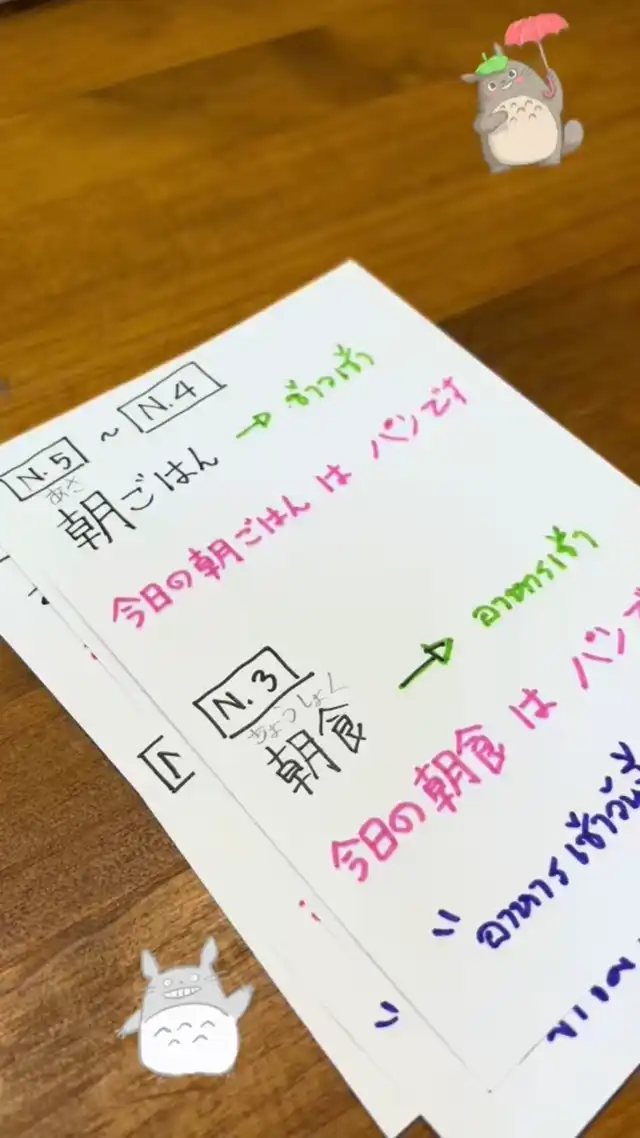 N.5 ~ N.4
あさ
朝ごはん → ข้าวเช้า
今日の朝ごはん は パンです
N.3
ちょうしょく
朝食 → อาหารเช้า
今日の朝食 は パンで
" อาหารเช้าวันนี้